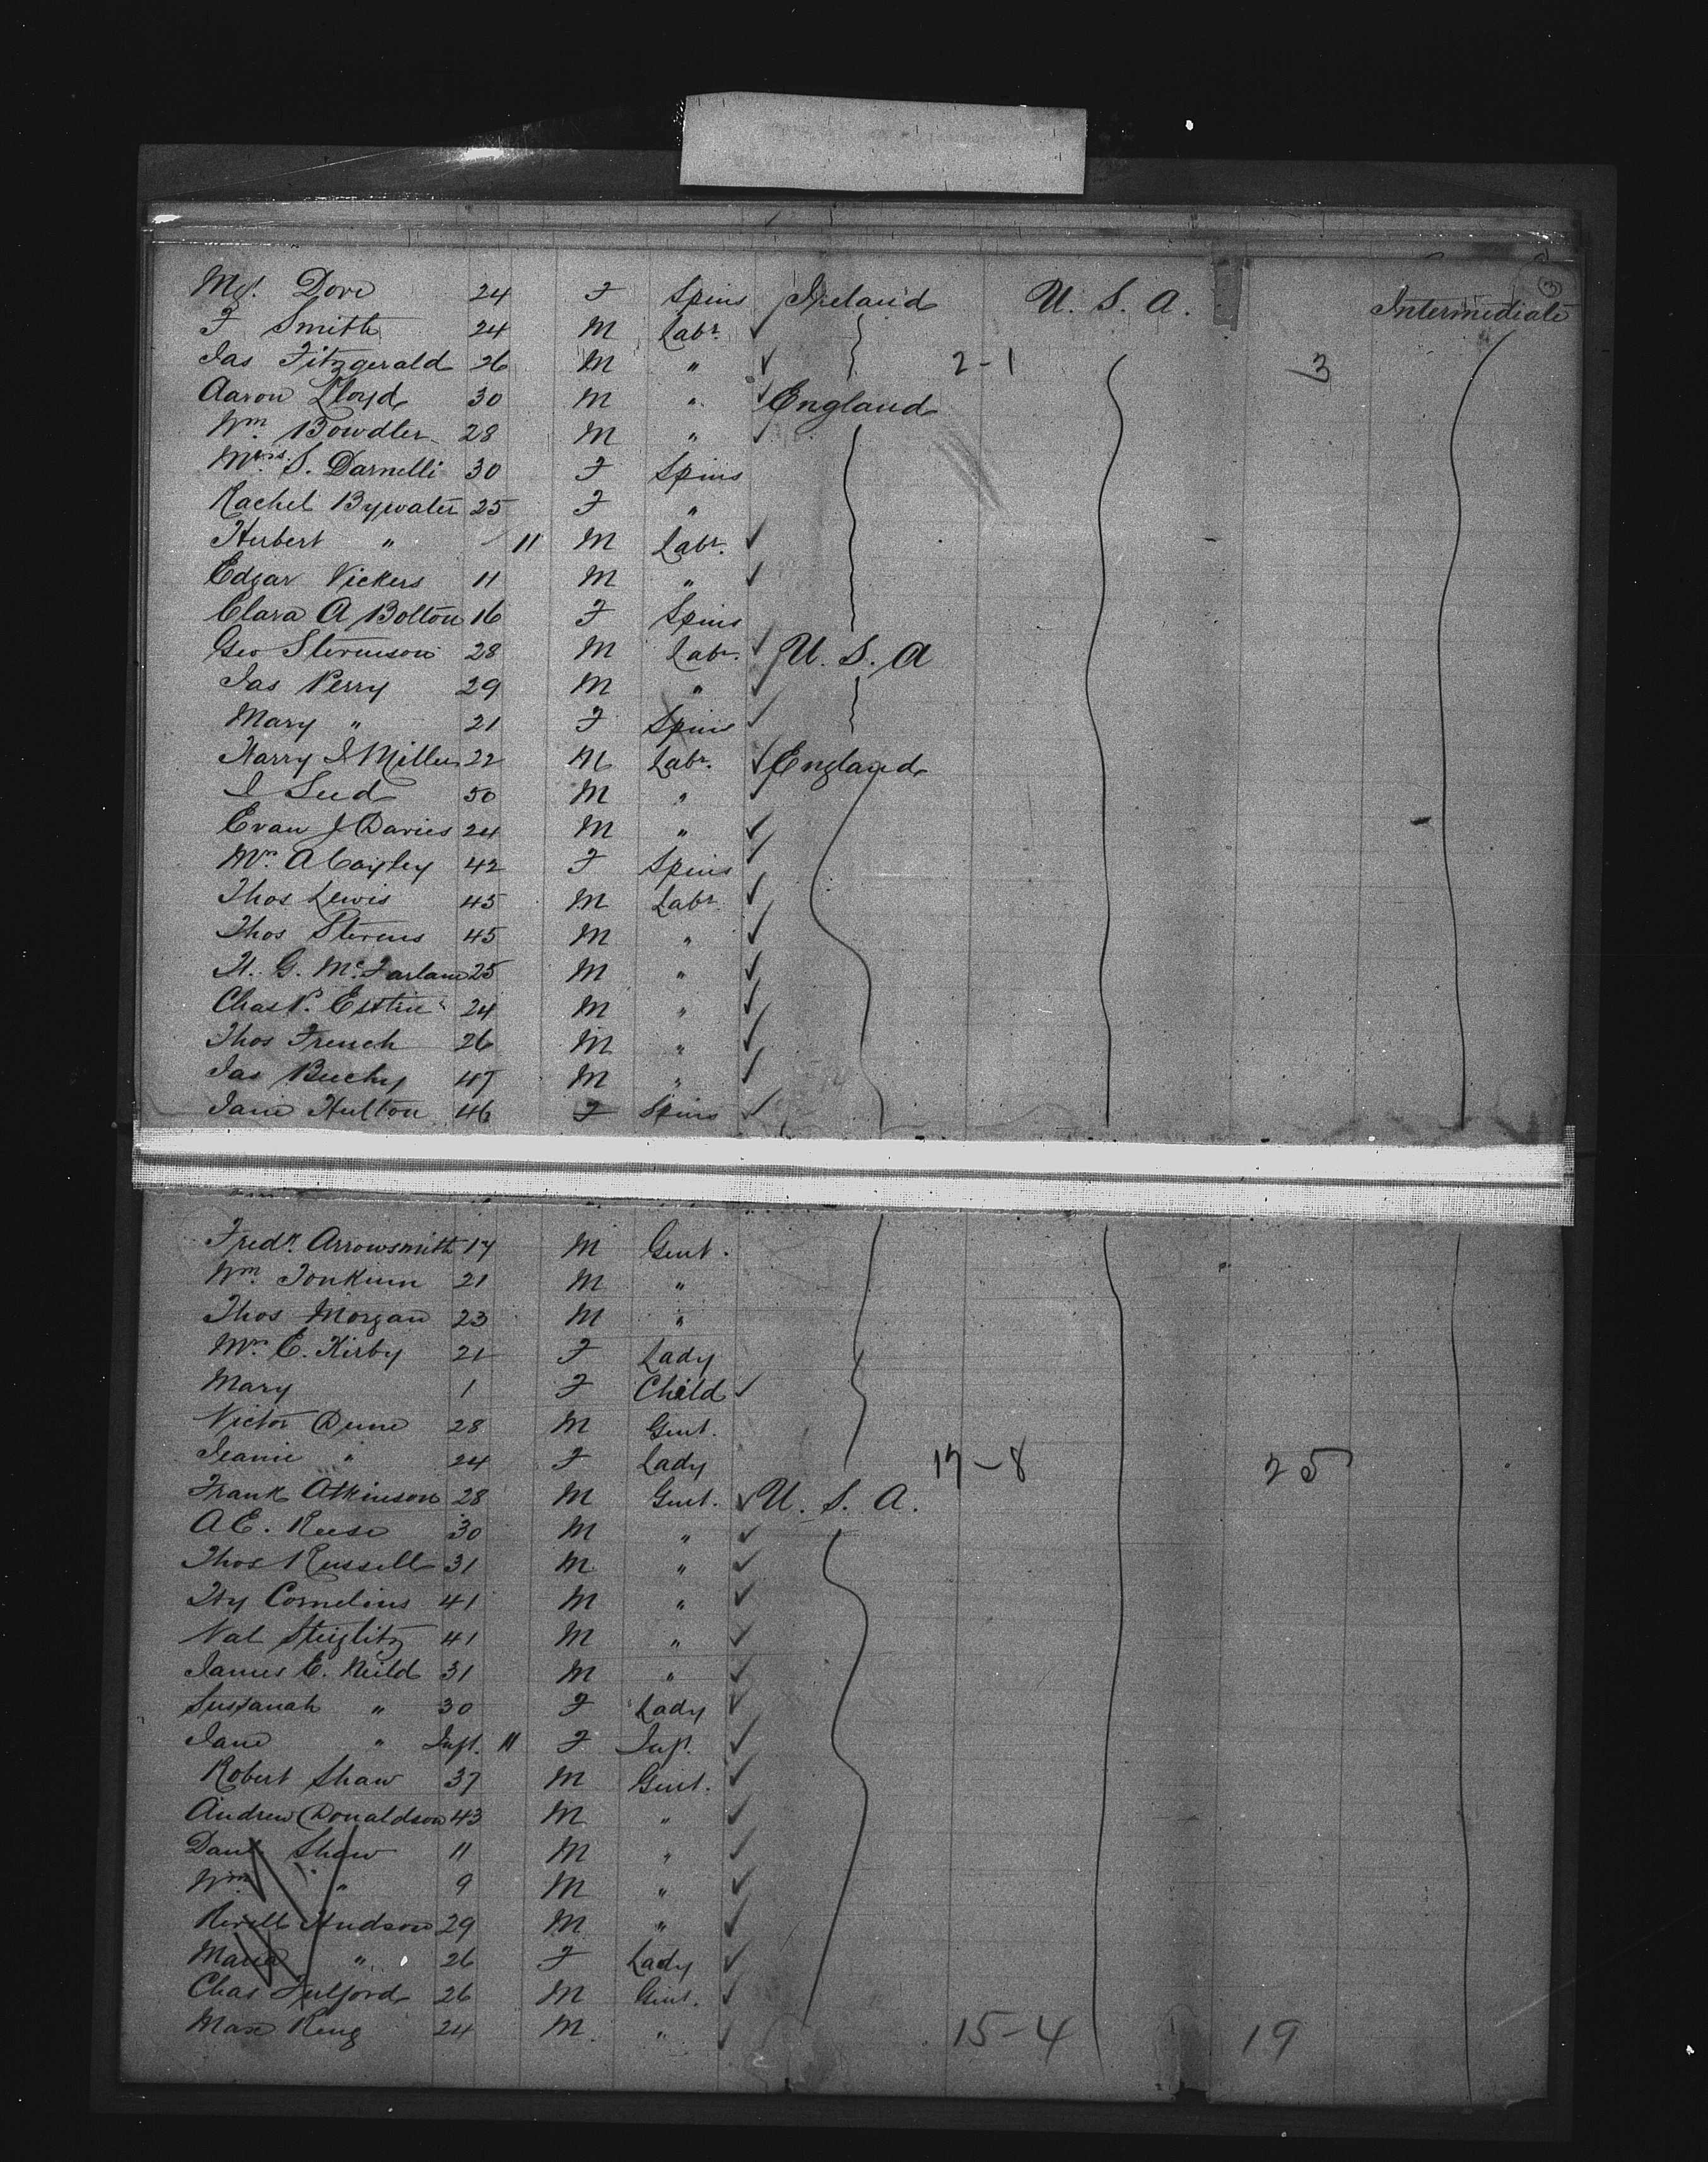 (3)
Mgt. Dore 24 F Spins Ireland U. S. A. Intermediate
F Smith 24 M Labr.
Jas Fitzgerald 26 M " 2-1 3
Aaron Lloyd 30 M " England
Wm. Bowdler 28 M "
S. Darnelli 30 F Spins
Rachel Bywater 25 F "
Herbert " 11 M Labr.
Edgar Vickers 11 M "
Clara A Bolton 16 F Spins
Geo 28 M Labr. U. S. A
Jas Perry 29 M "
Mary " 21 F Spins
Harry J Miller 22 M Labr. England
50 M "
Evan J Davies 24 M "
A Cayley 42 F Spins
Thos Lewis 45 M Labr.
Thos Stevens 45 M "
H. G. McFarlane 25 M "
Chas P. 24 M "
Thos French 26 M "
Jas 47 M "
Jane Hulton 46 F Spins
Fredk. Arrowsmith 17 M Gent.
Wm. Tonkinn 21 M "
Thos Morgan 23 M "
E. Kirby 21 F Lady
Mary 1 F Child
Victor 28 M Gent.
Jeanie " 24 F Lady 17-8 25
Frank Atkinson 28 M Gent. U. S. A.
A E. Reese 30 M "
Thos Russell 31 M "
Hy Cornelius 41 M "
Nat Steiglitz 41 M "
James E. Neild 31 M "
Susanah " 30 F Lady
Jane " Inft. 11 F Inf.
Robert Shaw 37 M Gent.
Andrew Donaldson 43 M "
Danl Shaw 11 M "
Wm. " 9 M "
Hudson 29 M "
Maria " 26 F Lady
Chas Fulford 26 M Gent.
Max 24 M. " 15-4 19